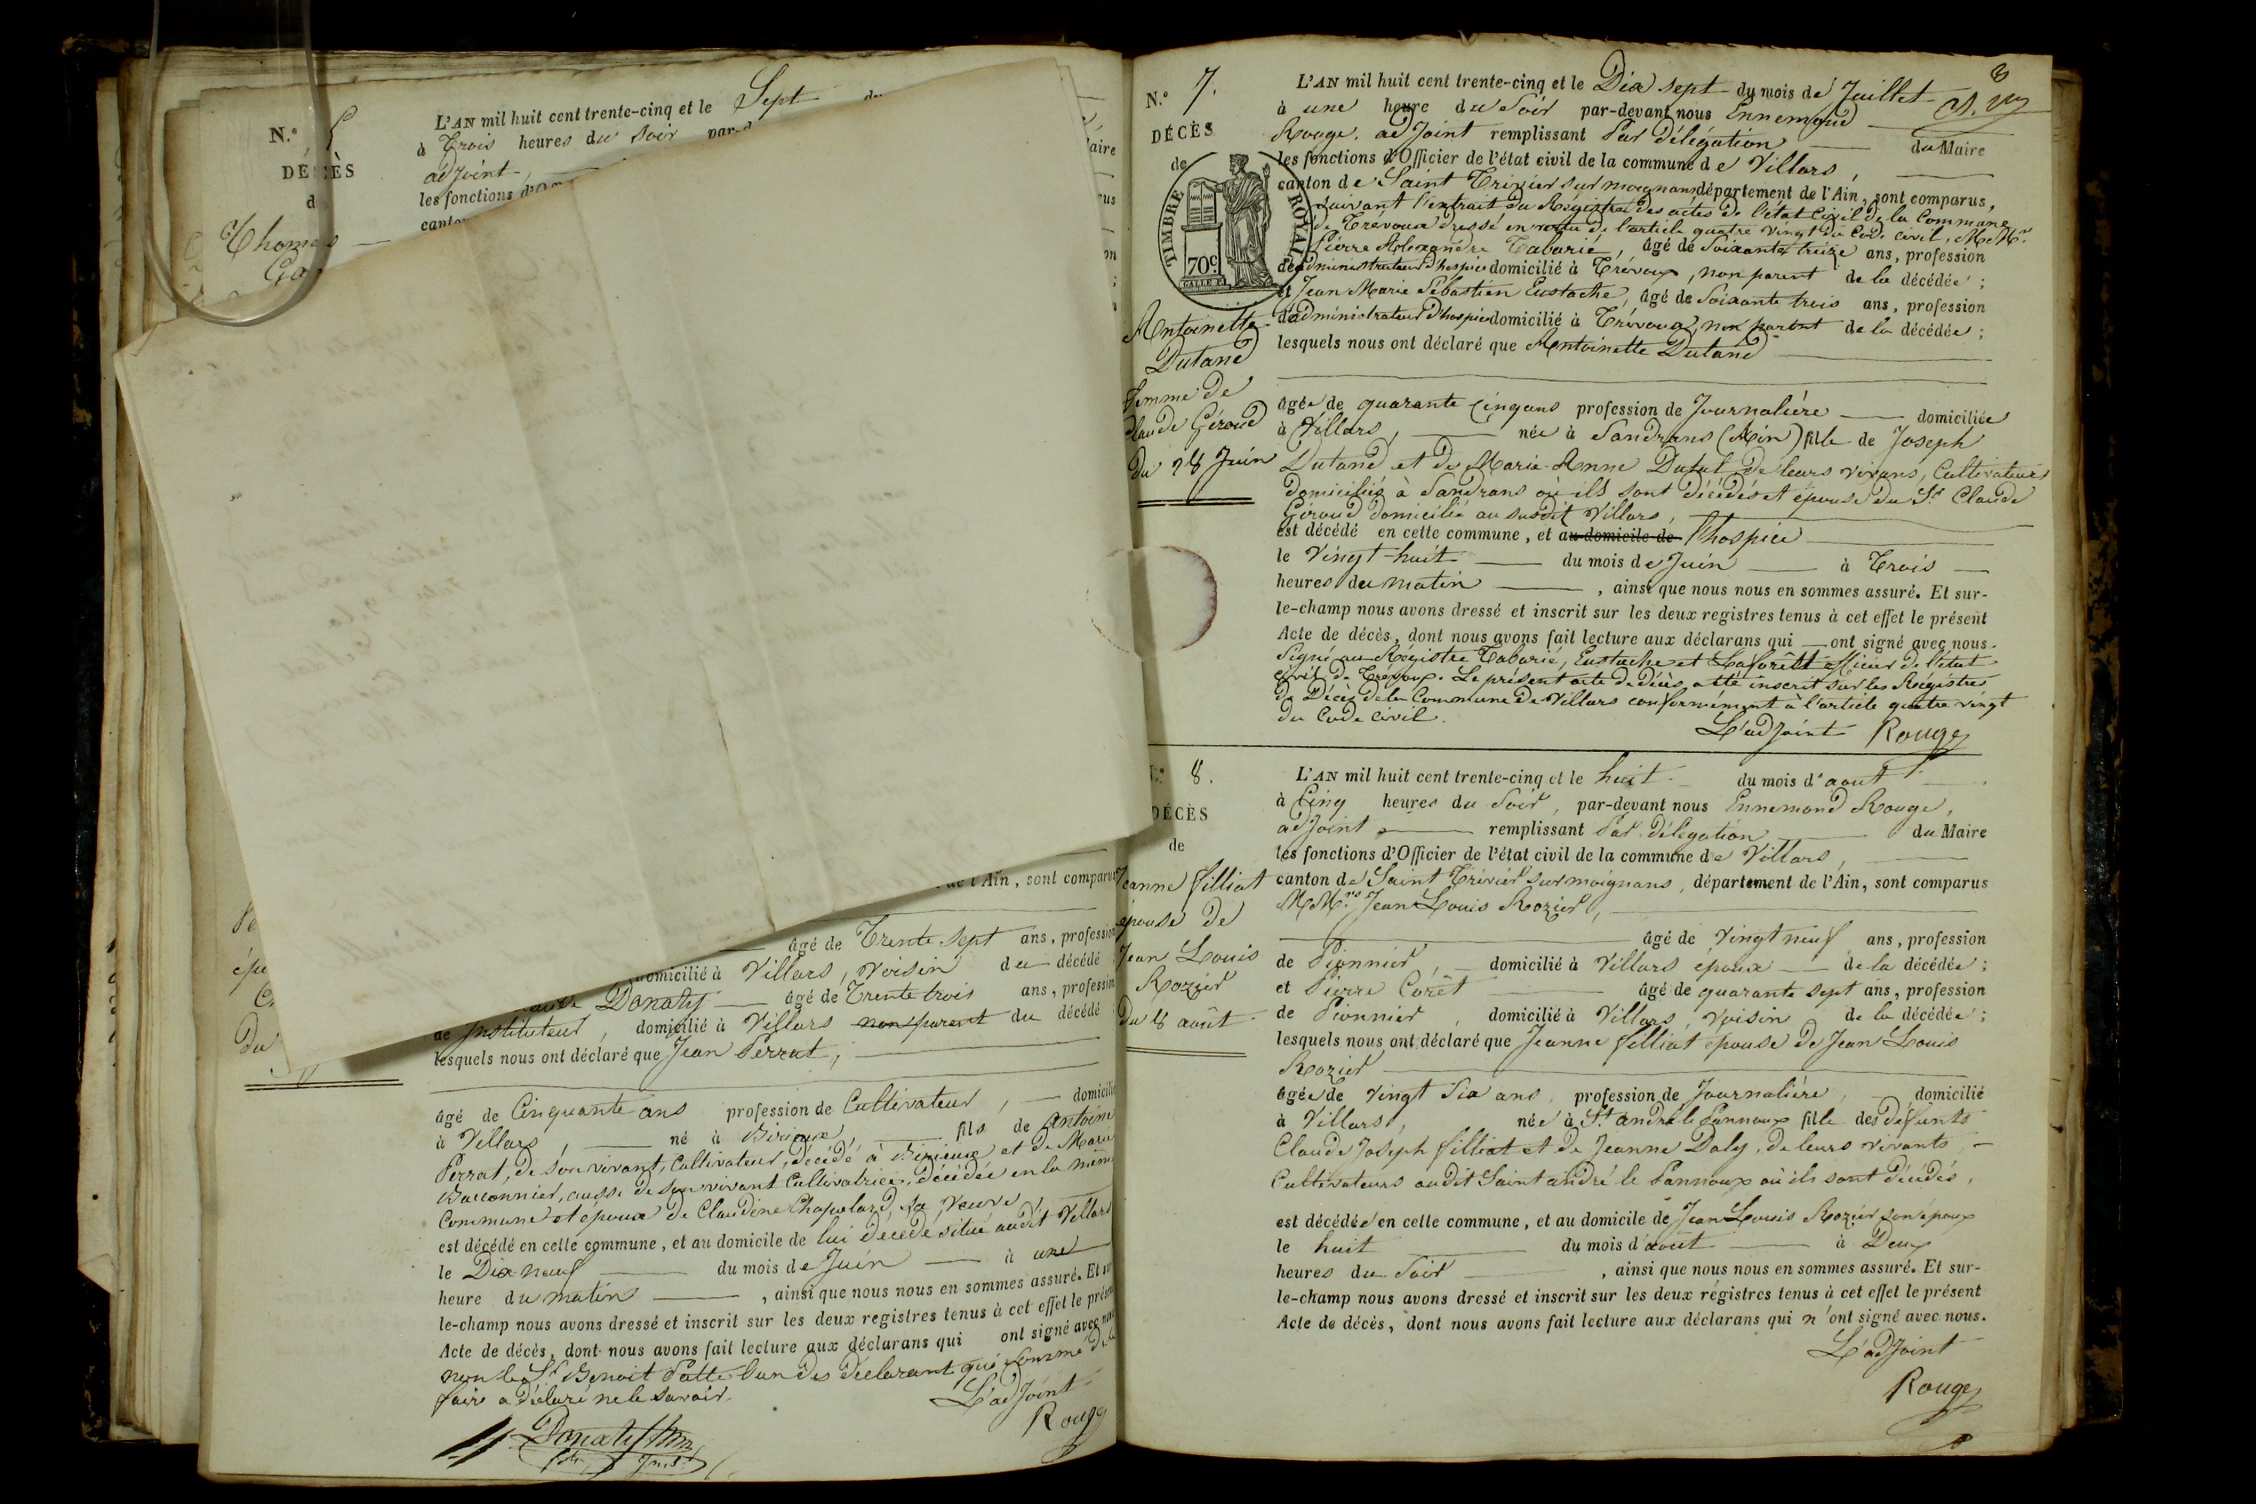 N.° 5
DÉCÈS
Thomas
L'AN mil huit cent trente-cinq et le Sept
à Trois heures du soir
adjoint
les fonctions
de l'Ain, sont comparus
âgé de Trente sept ans, profession
domicilié à Villars, voisin du décédé
Donaty âgé de Trente trois ans, profession
de Instituteur, domicilié à Villars non parent du décédé
lesquels nous ont déclaré que Jean Perrat,
âgé de Cinquante ans profession de Cultivateur, domicilié
à Villars, né à Birieux, fils de Antoine
Perrat, de son vivant, Cultivateur, décédé à Birieux et de Marie
Baconnier, aussi de son vivant Cultivatrice, décédée en la même
Commune et époux de Claudine Chapeland, sa veuve,
est décédé en cette commune, et au domicile de lui décédé situé audit Villars
le Dix neuf du mois de Juin à une
heure du matin, ainsi que nous nous en sommes assuré. Et sur-
le-champ nous avons dressé et inscrit sur les deux registres tenus à cet effet le présent
Acte de décès, dont nous avons fait lecture aux déclarans qui ont signé avec nous
non le Sr. Benoit Patte l'un des déclarant qui sommé de le
faire a déclaré ne le savoir.
L'adjoint
Rouge
Donaty
N.° 7.
DÉCÈS
de
TIMBRE ROYAL
70c.
Antoinette
Dutand
femme de
Claude Géroud
Du 28 Juin
8
L'AN mil huit cent trente-cinq et le Dix sept du mois de Juillet
à une heure du Soir par-devant nous Ennemond
Rouge, adjoint remplissant Par délégation du Maire
les fonctions d'Officier de l'état civil de la commune de Villars,
canton de Saint Trivier sur moignans, département de l'Ain, sont comparus,
suivant l'extrait du Régistre des actes de l'état Civil de la Commune
de Trévoux dressé en vertu de l'article quatre vingt du Code civil, M.Mrs
Pierre Alexandre Tabarié, âgé de Soixante treize ans, profession
d'administrateur d'hospice domicilié à Trévoux, non parent de la décédée;
et Jean Marie Sébastien Eustache, âgé de Soixante trois ans, profession
d'administrateur d'hospice domicilié à Trévoux, non parent de la décédée;
lesquels nous ont déclaré que Antoinette Dutand
âgée de quarante Cinq ans profession de Journalière domiciliée
à Villars, née à Sandrans (Ain) fille de Joseph
Dutand et de Marie-Anne Dutal de leurs vivans, Cultivateurs
domiciliés à Sandrans où ils sont décédés et épouse du Sr. Claude
Géroud domicilié au susdit Villars,
est décédé en cette commune, et au domicile de l'hospice
le Vingt-huit du mois de Juin à Trois
heures du matin, ainsi que nous nous en sommes assuré. Et sur-
le-champ nous avons dressé et inscrit sur les deux registres tenus à cet effet le présent
Acte de décès, dont nous avons fait lecture aux déclarans qui ont signé avec nous.
Signé au Régistre Tabarié, Eustache et Laforêtt officier de l'état
civil de Trévoux. Le présent acte de décès a été inscrit sur les Régistres
de Décès de la Commune de Villars conformément à l'article quatre vingt
du Code civil.
L'adjoint Rouge
N.° 8.
DÉCÈS
de
Jeanne filliat
épouse de
Jean Louis
Rozier
Du 8 août
L'AN mil huit cent trente-cinq et le huit du mois d'aout
à Cinq heures du Soir, par-devant nous Ennemond Rouge,
adjoint remplissant Par délégation du Maire
les fonctions d'Officier de l'état civil de la commune de Villars,
canton de Saint Trivier sur moignans, département de l'Ain, sont comparus
M.Mrs Jean Louis Rozier,
âgé de vingt neuf ans, profession
de Pionnier, domicilié à Villars époux de la décédée;
et Pierre Corêt âgé de quarante sept ans, profession
de Pionnier, domicilié à Villars, voisin de la décédée;
lesquels nous ont déclaré que Jeanne filliat épouse de Jean Louis
Rozier
âgée de vingt Six ans, profession de Journalière, domicilié
à Villars, née à St. andré le Pannoux fille des défunts
Claude Joseph filliat et de Jeanne Daly, de leurs vivants,
Cultivateurs audit Saint andré le Pannoux où ils sont décédés,
est décédée en cette commune, et au domicile de Jean Louis Rozier son époux
le huit du mois d'août à Deux
heures du Soir, ainsi que nous nous en sommes assuré. Et sur-
le-champ nous avons dressé et inscrit sur les deux régistres tenus à cet effet le présent
Acte de décès, dont nous avons fait lecture aux déclarans qui n'ont signé avec nous.
L'adjoint
Rouge